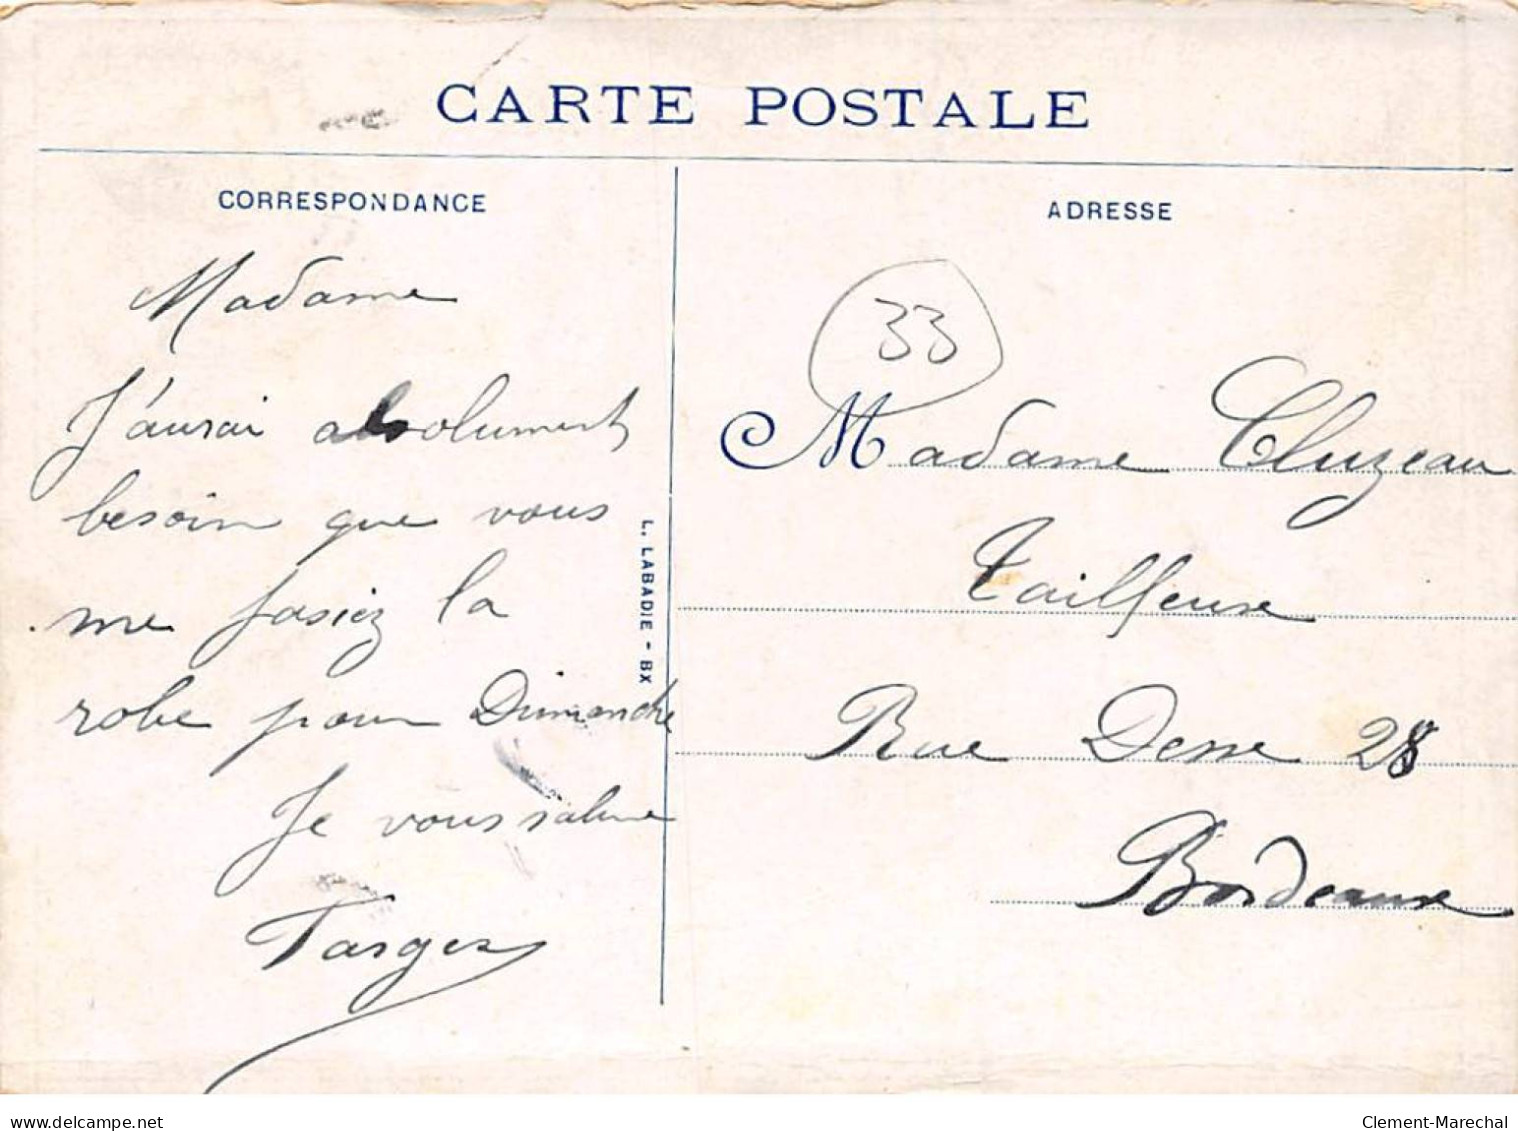 CARTE POSTALE
CORRESPONDANCE
Madame
J'aurai absolument
besoin que vous
me fasiez la
robe pour Dimanche
Je vous salue
L. LABADIE - BX
ADRESSE
33
Madame Cluzeau
Tailleuse
Rue Desse 28
Bordeaux
delcampe.net
Clement-Marechal